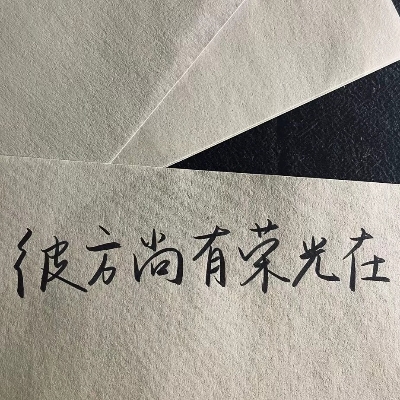 彼方尚有荣光在